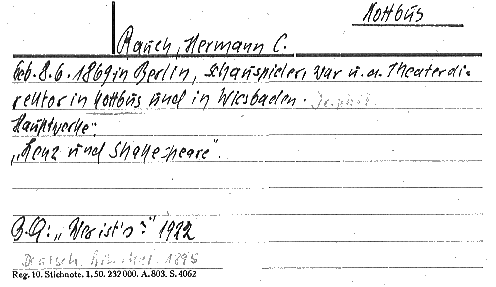 Kottbus
Rauch, Hermann C.
Geb. 8.6.1869 in Berlin, Schauspieler, war u. a. Theaterdi-
rektor in Kottbus und in Wiesbaden.
Hauptwerke:
„Lenz und Shakespeare".
B.Q: „Wer ist's?" 1922
Deutsch. 1895
Reg. 10. Stichnote. 1. 50. 232000. A. 803. S. 4062